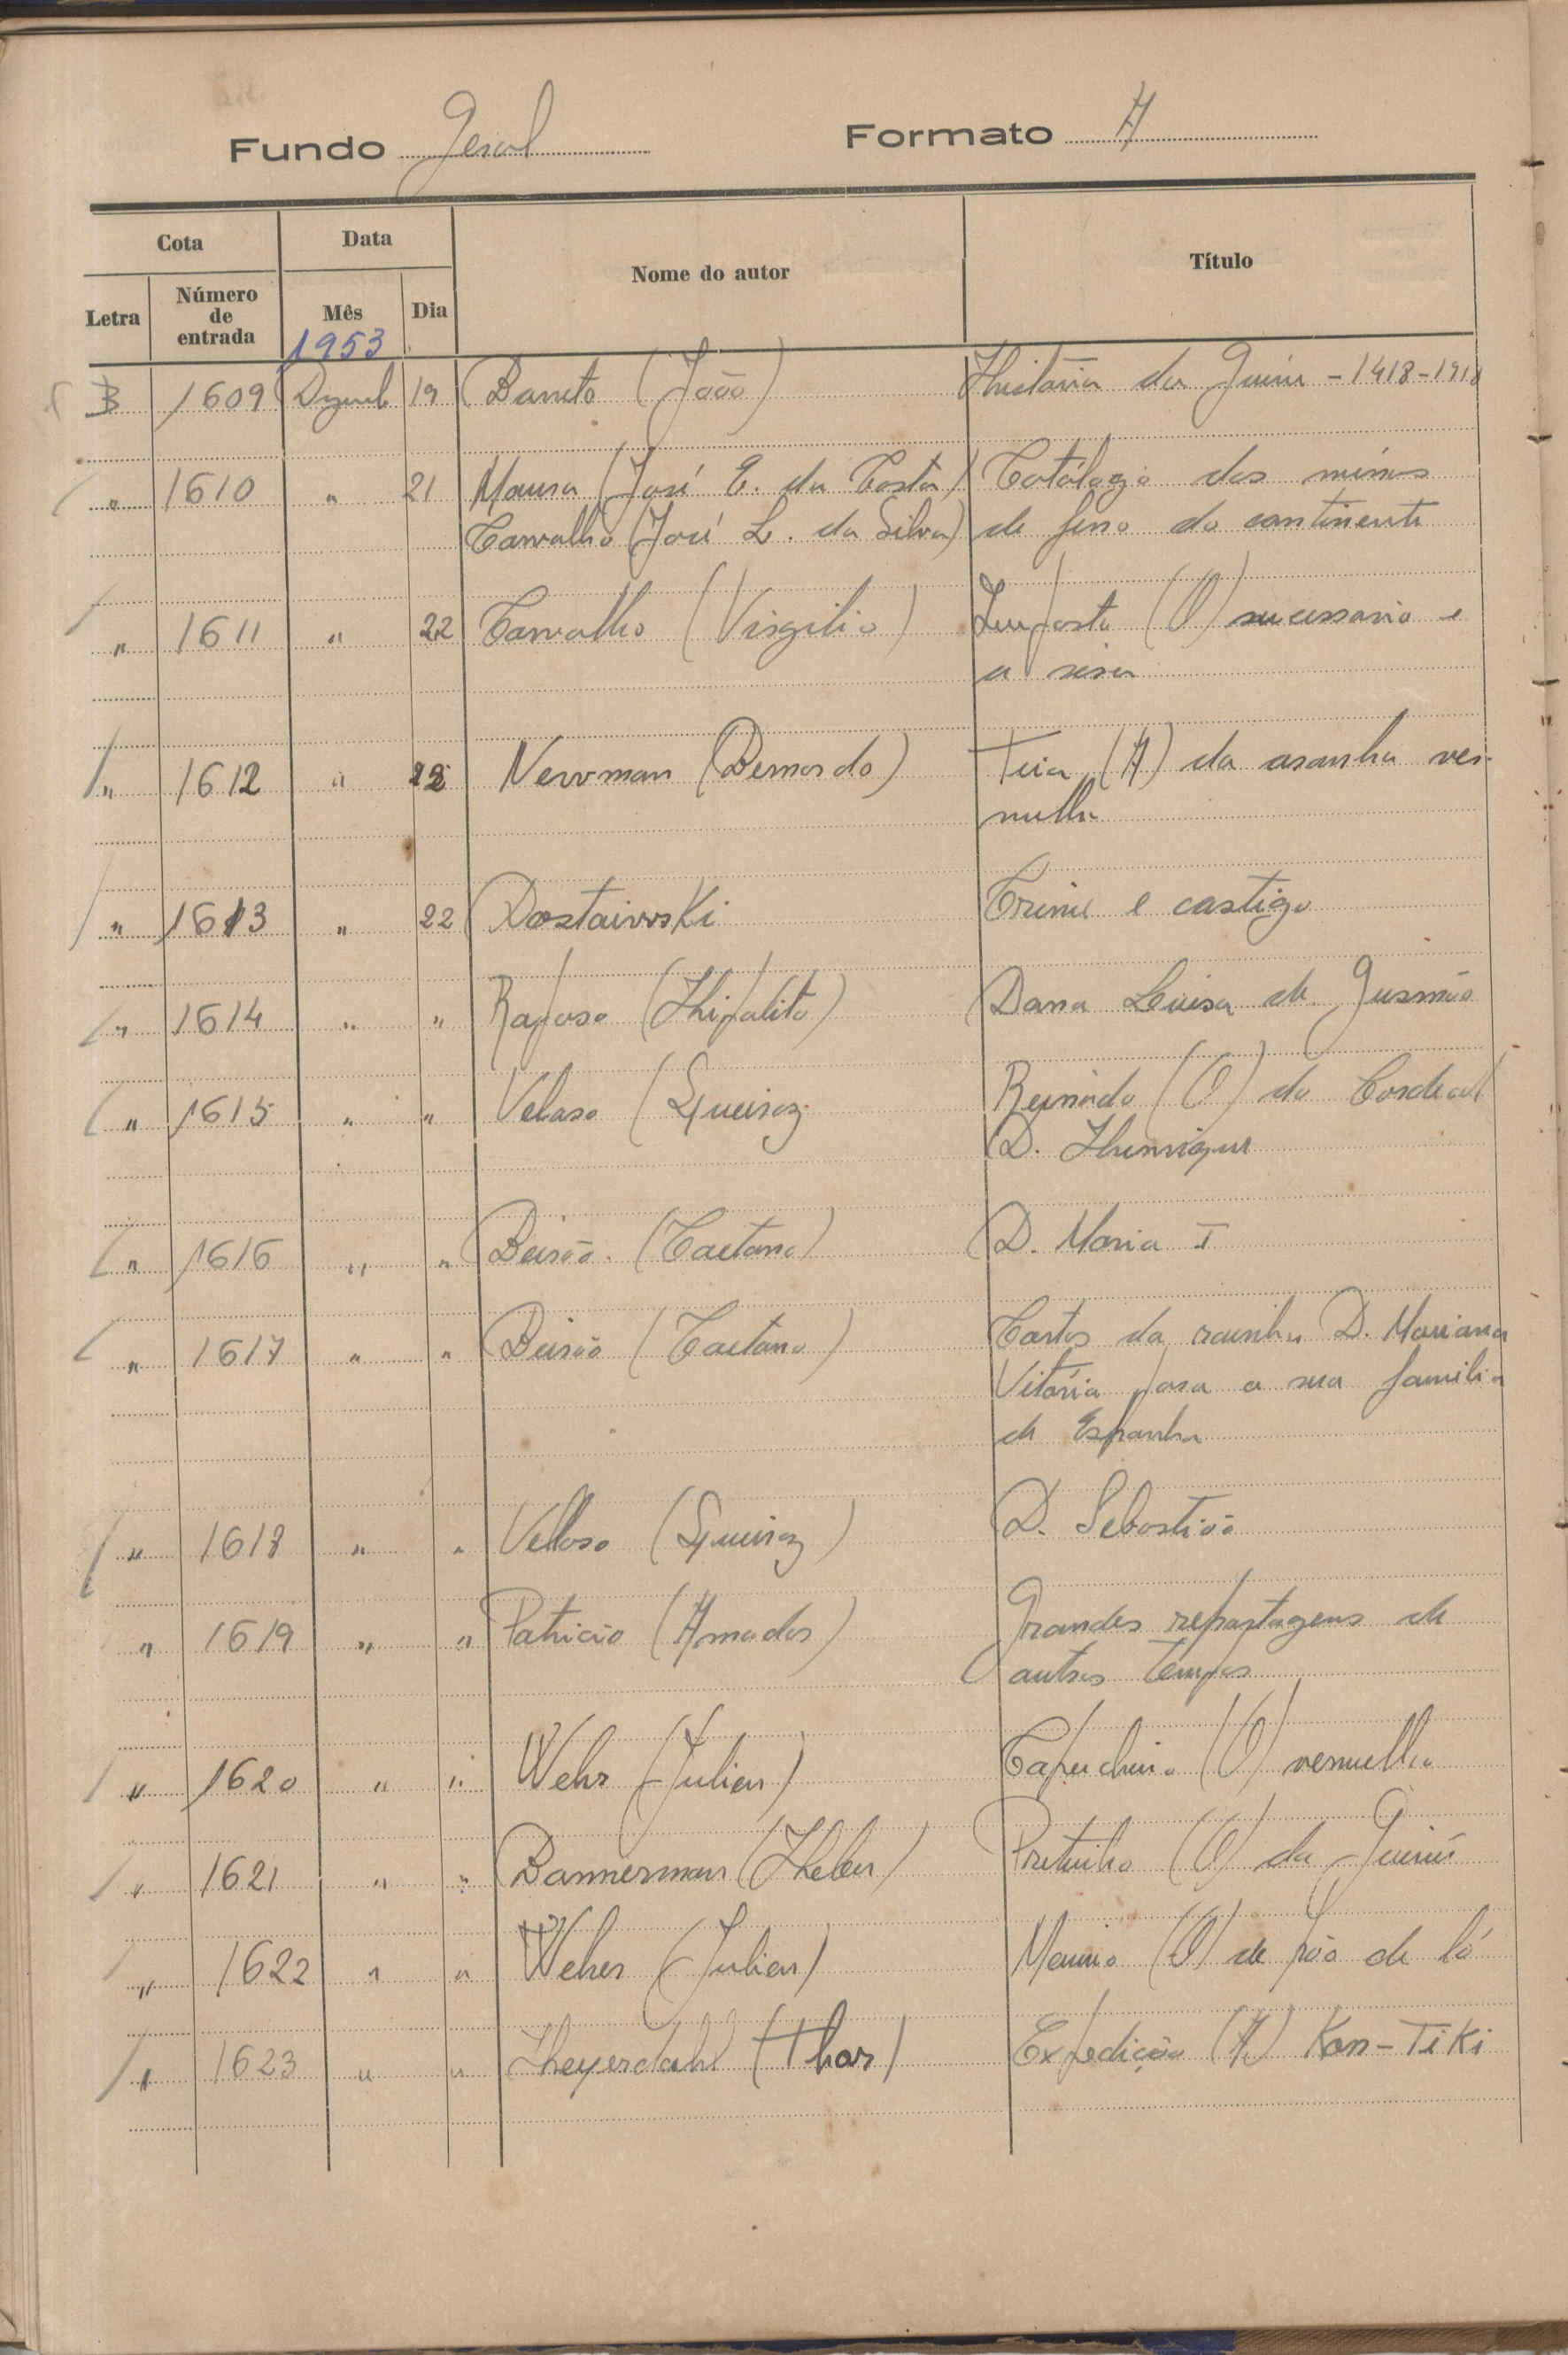 Fundo Geral Formato A
Cota Data Nome do autor Título
Letra Número de entrada Mês Dia
1953
B 1609 Dezemb 19 Barreto (João) História da Guiné - 1418-1918
" 1610 " 21 Moura (José E. da Costa) Catálogo das minas
Carvalho (José L. da Silva) de ferro do continente
" 1611 " 22 Carvalho (Virgilio) Imposto (O) sucessorio e
a sisa
" 1612 " 22 Newman (Bernardo) Teia (A) da aranha ver-
melha
" 1613 " 22 Dostaiwski Crime e castigo
" 1614 " " Raposo (Hipolito) Dona Luisa de Gusmão
" 1615 " " Veloso (Queiroz Reinado (O) do Cardeal
D. Henrique
" 1616 " " Beirão (Caetano) D. Maria I
" 1617 " " Beirão (Caetano) Cartas da rainha D. Mariana
Vitória para a sua familia
de Espanha
" 1618 " " Velloso (Queiroz) D. Sebastião
" 1619 " " Patricio (Amador) Grandes repartagens de
outros tempos
" 1620 " " Wehr (Julian) Capuchinho (O) vermelho
" 1621 " " Bannerman (Helen) Pretinho (O) da Guiné
" 1622 " " Weher (Julian) Menino (O) de pão de ló
" 1623 " " Heyerdahl (Thor) Expedição (A) Kon-Tiki